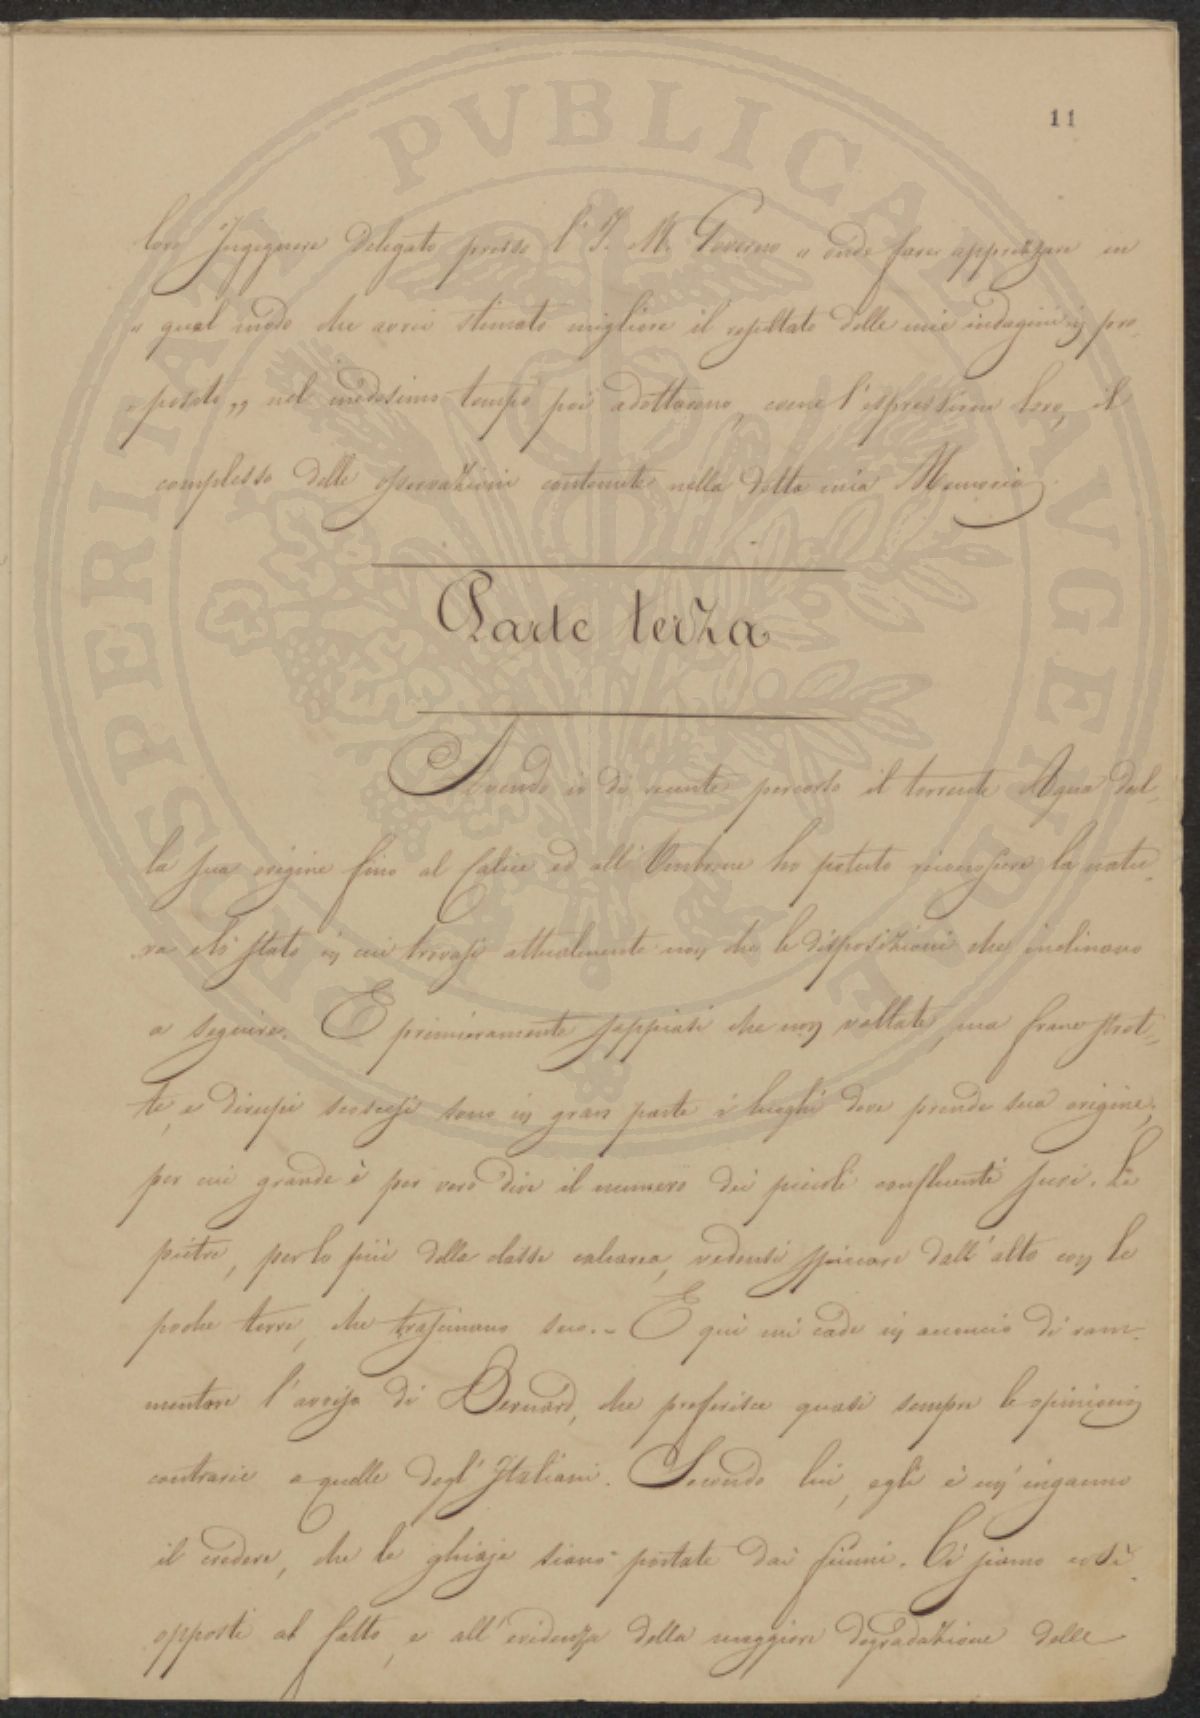 11
loro Ingegnere Delegato presso l'I. M. Governo « onde fare apprezzare in
« qual modo che avrei stimato migliore il resultato delle mie indagini in pro-
« posito „ nel medesimo tempo poi adottarono, come l'espressione loro, il
complesso delle osservazioni contenute nella detta mia Memoria.
Parte terza
Avendo io di recente percorso il torrente Agna dal-
la sua origine fino al Calice ed all'Ombrone ho potuto riconoscere la natu-
ra e lo stato in cui trovasi attualmente non che le disposizioni che inclinano
a seguire. E primieramente sappiasi che non vallate, ma frane stret-
te, e dirupi scoscesi sono in gran parte i luoghi dove prende sua origine,
per cui grande è per vero dire il numero dei piccoli confluenti suoi. Le
pietre, per lo più della classe calcarea, vedonsi spiccare dall'alto con le
poche terre, che trascinano seco. - E qui mi cade in acconcio di ram-
mentare l'avviso di Bernard, che preferisce quasi sempre le opinioni
contrarie a quelle degl'Italiani. Secondo lui, egli è un'inganno
il credere, che le ghiaje siano portate dai fiumi. Ci siamo così
opposti al fatto, e all'evidenza della maggiore degradazione delle
PROSPERITATI PVBLICAE AVGENDAE